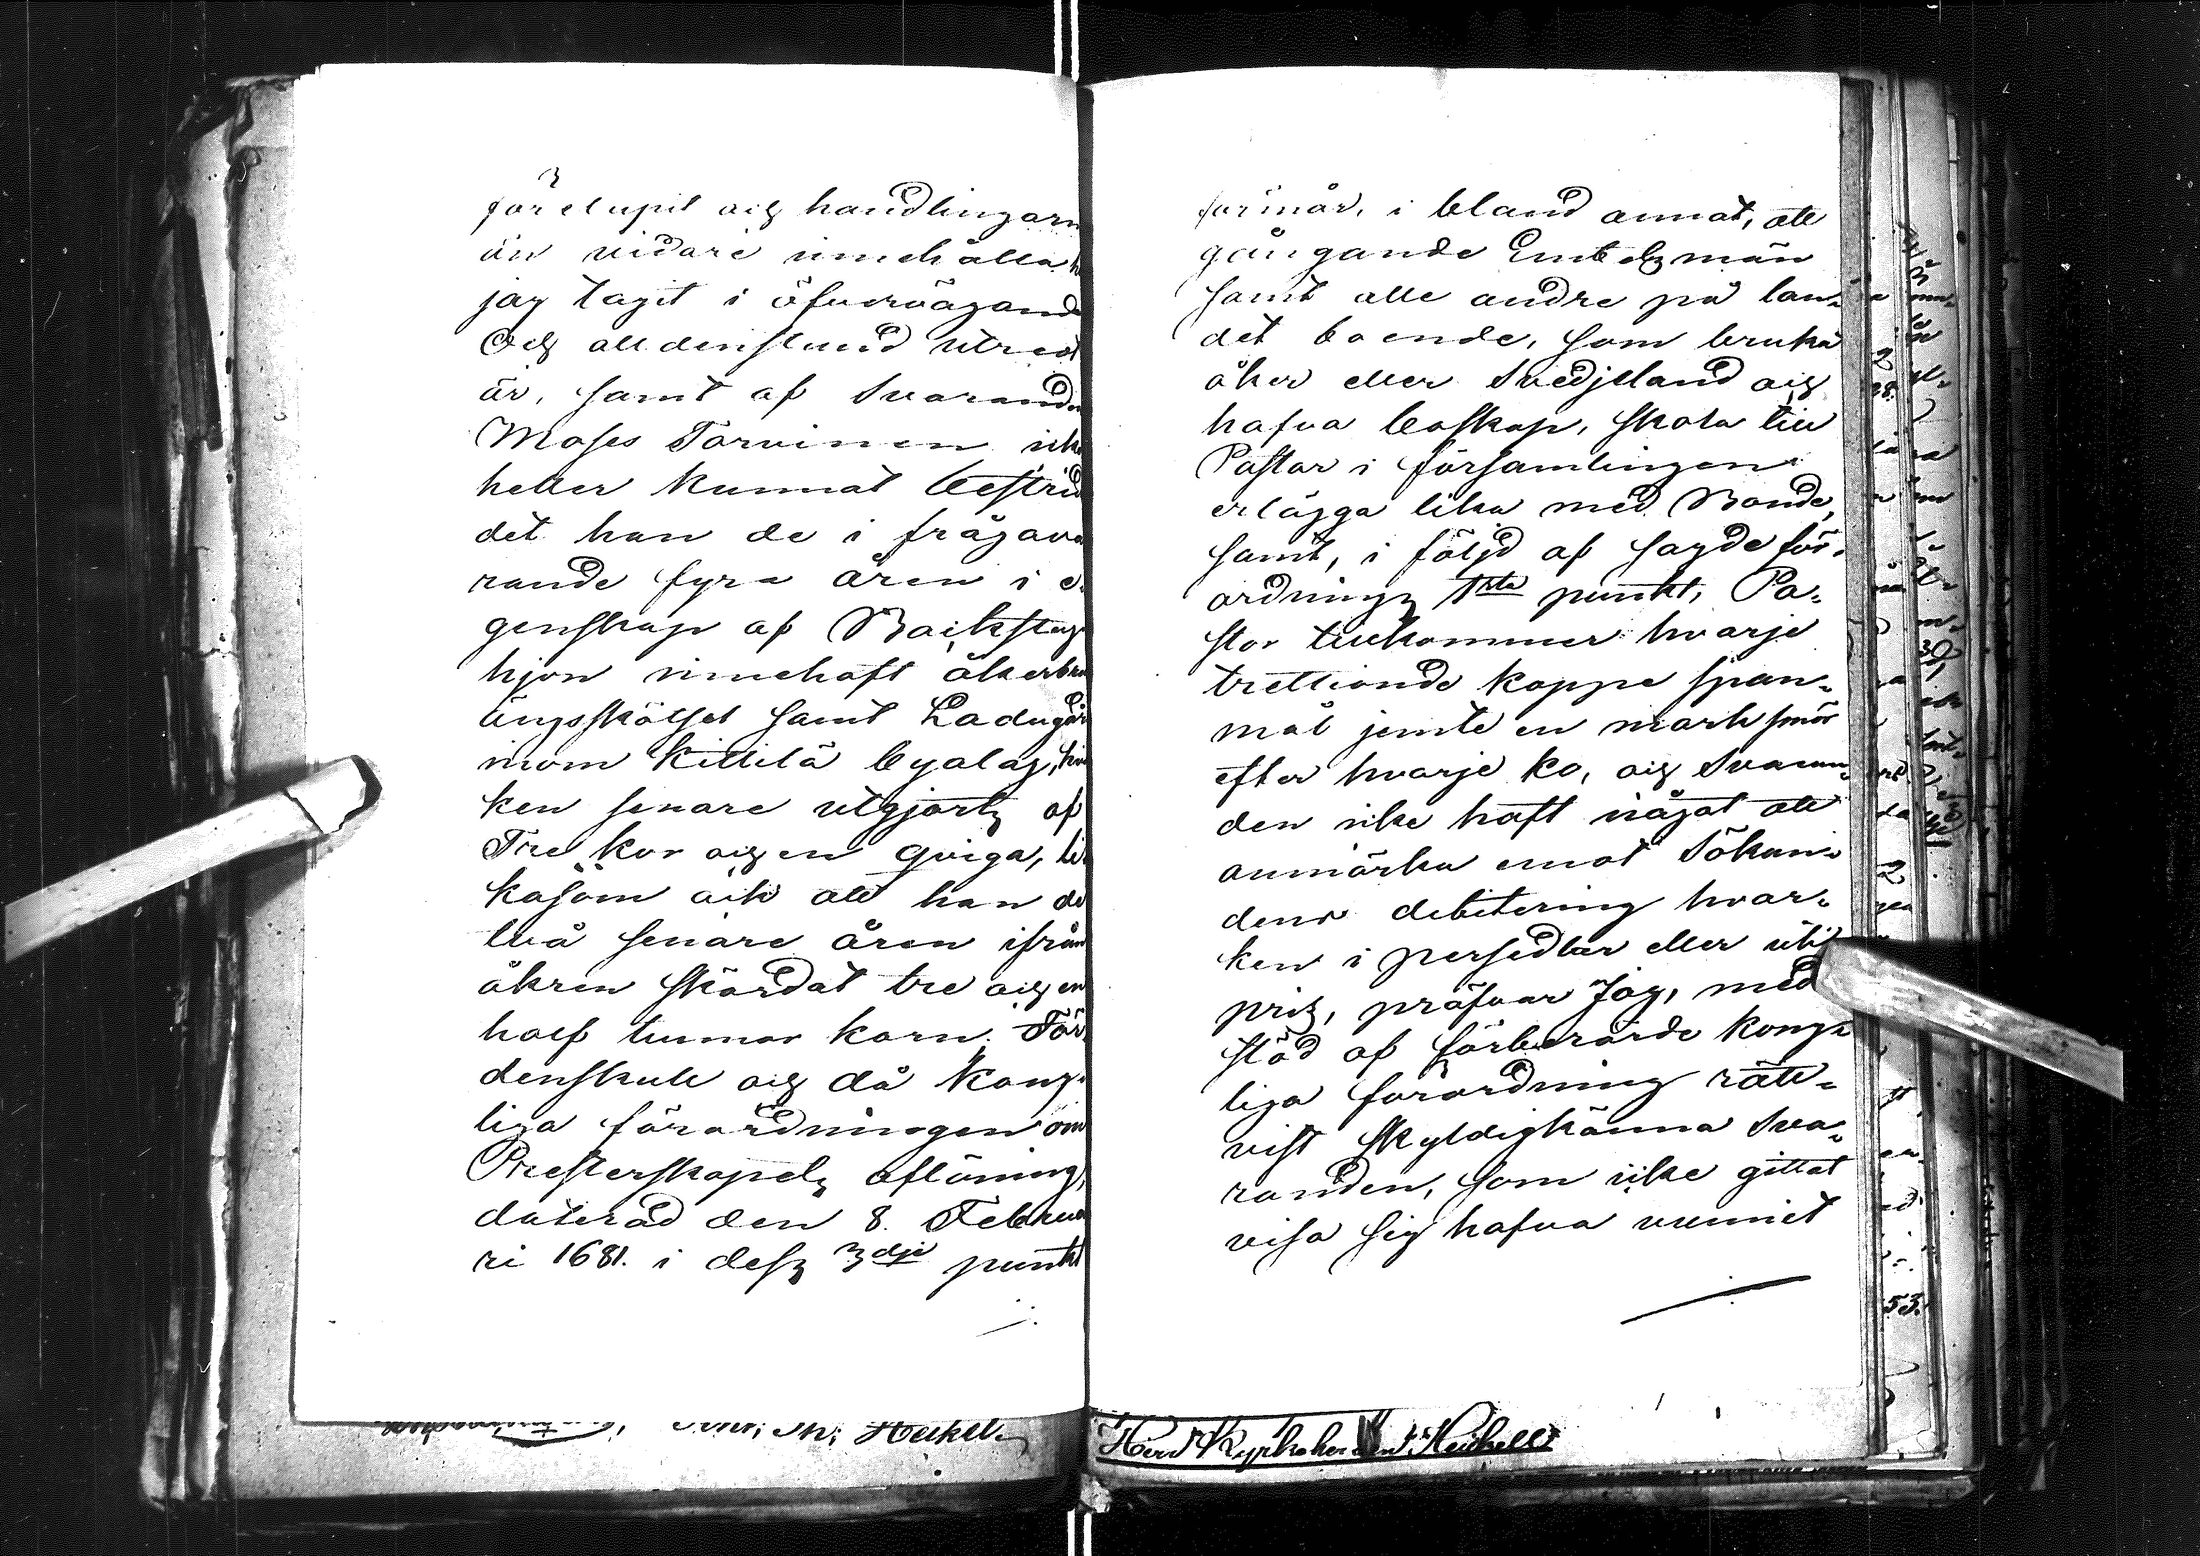 förelupit och handlingarn
än vidare innehålla, h
jag tagit i öfvervägand
Och alldenstund utredt
är, samt af Svarande
Moses Torvinen icke
heller kunnat bestrid
det han de i frågava
rande fyra åren i e-
genskap af Backstug
hjon innehaft åkerbru
ängsskötsel samt Ladugår
inom Kittilä byalag, hvil
ken senare utgjorts af
Tre kor och en qviga, li
kasom ock att han de
två senare åren ifrån
åkren skördat tre och en
half tunnor korn. För
denskull och då Kong-
liga förordningen om
Presterskapets aflöning,
daterad den 8. Februa
ri 1681. i dess 3dje punkt
förmår, i bland annat, att
gångande Embetsmän
samt alle andre på lan-
det boende, som bruka
åker eller Svedjeland och
hafva boskap, skola till
Pastor i församlingen
erlägga lika med Bonde,
samt, i följd af sagde för-
ordnings 1sta punkt, Pa-
stor tillkommer hvarje
trettionde kappe span-
mål jemte en mark smör
efter hvarje ko, och Svaran-
den icke haft något att
anmärka emot Sökan-
dens debitering hvar-
ken i persedlar eller uti
pris, pröfvar Jag, med
stöd af förberörde Kong-
liga förordning rätt-
vist skyldigkänna Sva-
randen, som icke gittat
visa sig hafva vunnit
Heikel
Herr Kyrkoherden Heickell